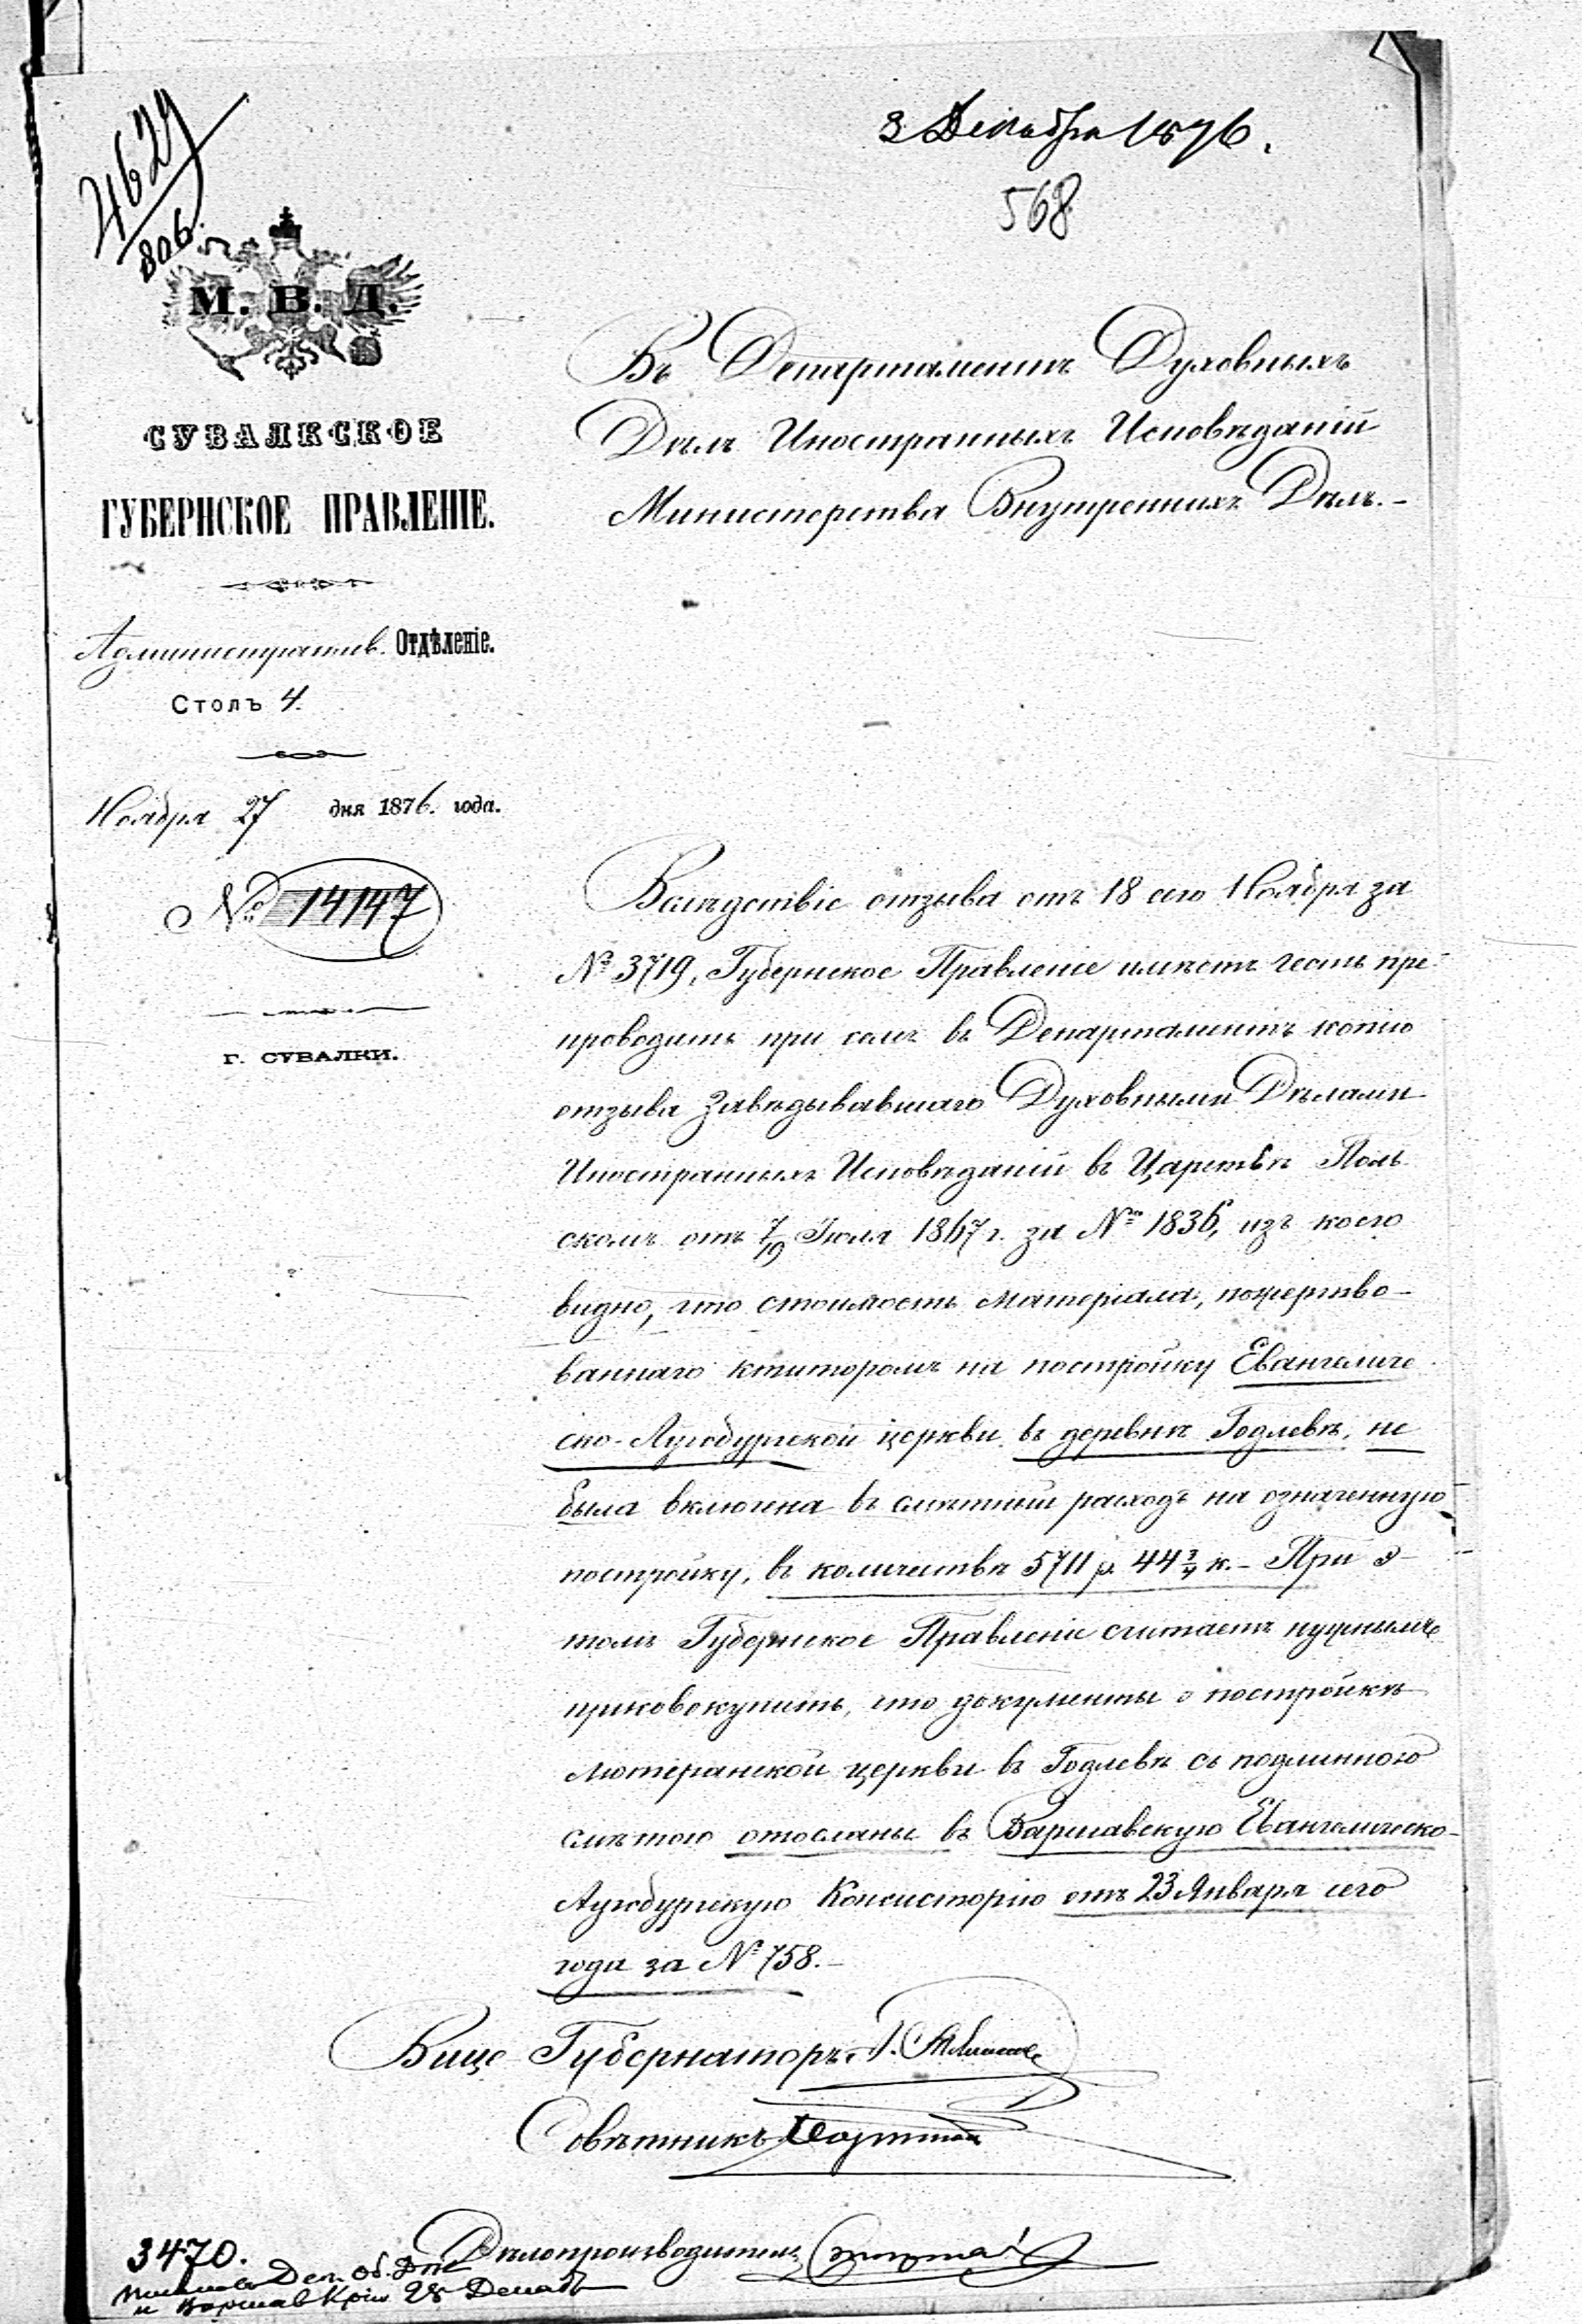 4629
806.
3 Декабря 1876.
568
М. В. Д.
СУВАЛКСКОЕ
ГУБЕРНСКОЕ ПРАВЛЕНІЕ.
Административ. Отдѣленіе.
Столъ 4.
Ноября 27 дня 1876. года.
№ 14147
г. СУВАЛКИ.
Въ Департаментъ Духовныхъ
Дѣлъ Иностранныхъ Исповѣданій
Министерства Внутреннихъ Дѣлъ.-
Вслѣдствіе отзыва отъ 18 сего Ноября за
№ 3719, Губернское Правленіе имѣетъ честь пре-
проводить при семъ въ Департаментъ копію
отзыва Завѣдывавшаго Духовными Дѣлами
Иностранныхъ Исповѣданій въ Царствѣ Поль-
скомъ отъ 7/19 Іюля 1867 г. за № 1836, изъ коего
видно, что стоимость матеріала, пожертво-
ваннаго ктиторомъ на постройку Евангеличе
ско-Аугсбургской церкви въ деревнѣ Годлевѣ, не
была включена въ смѣтный расходъ на означенную
постройку, въ количествѣ 5711 р. 44 3/4 к.- При э-
томъ Губернское Правленіе считаетъ нужнымъ
присовокупить, что документы о постройкѣ
лютеранской церкви въ Годлевѣ съ подлинною
смѣтою отосланы въ Варшавскую Евангелическо-
Аугсбургскую Консисторію отъ 23 Января сего
года за № 758.-
Вице-Губернаторъ
Совѣтникъ
Дѣлопроизводитель
3470.
Деп. Об. Дѣл
и Варшав 28 Декаб